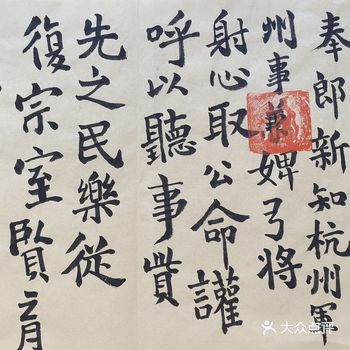 奉郎新知杭州軍
州事蔡婢弓將
射心取公命讙
呼以聽事貲
先之民樂從
復宗室賢育
大众点评